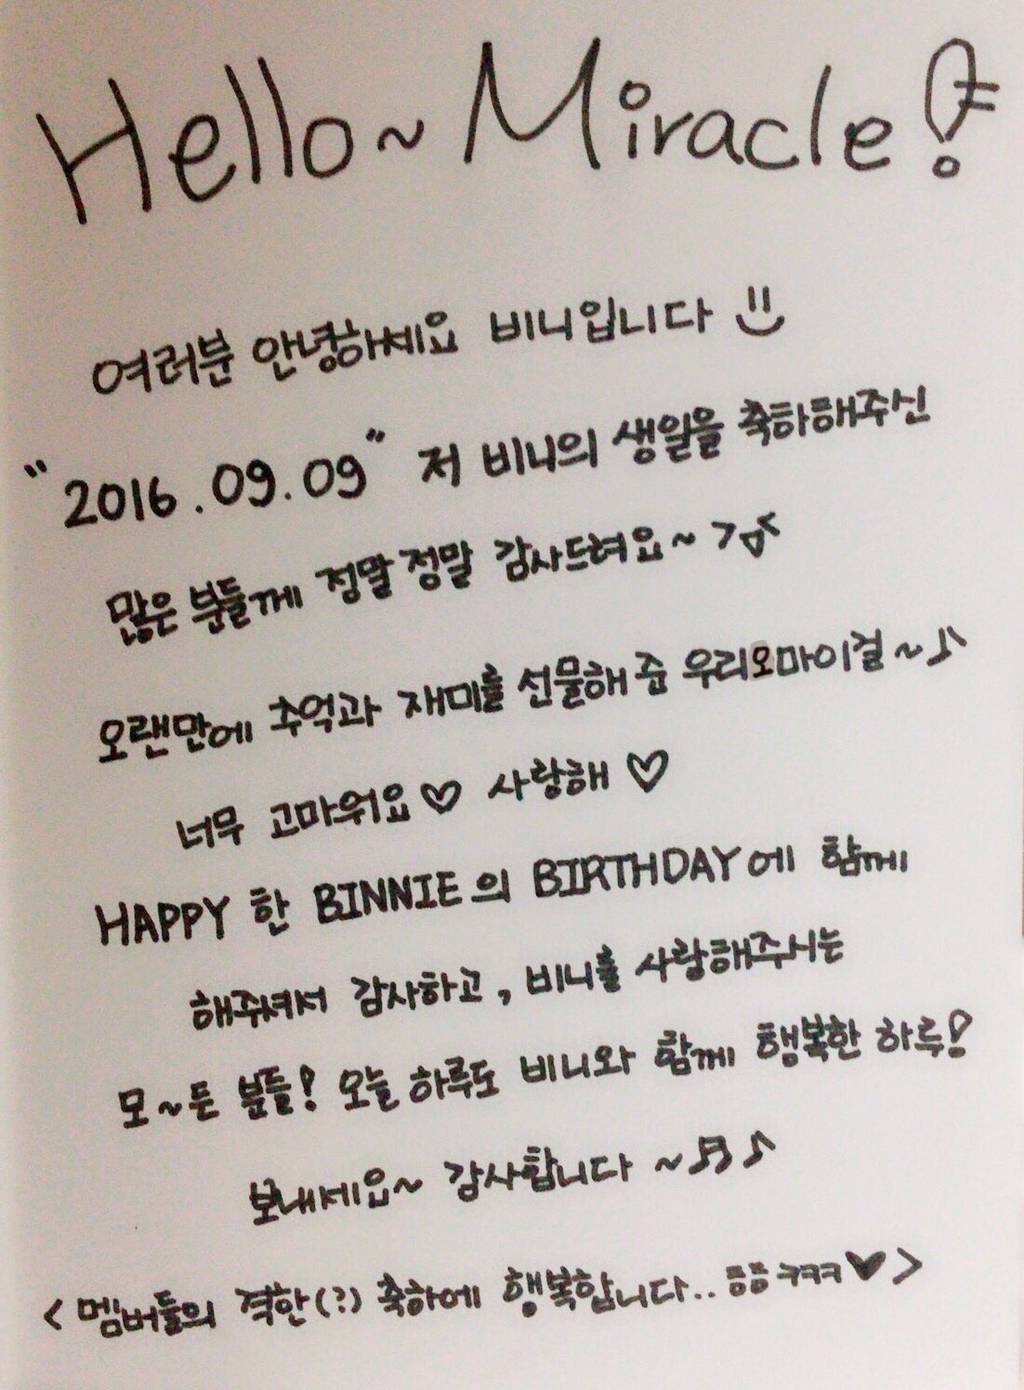 Hello~ Miracle!
여러분 안녕하세요 비니입니다
"2016.09.09" 저 비니의 생일을 축하해주신
많은 분들께 정말정말 감사드려요~ >ㅁ<
오랜만에 추억과 재미를 선물해 준 우리오마이걸~♪
너무 고마워요♡ 사랑해♡
HAPPY 한 BINNIE의 BIRTHDAY에 함께
해주셔서 감사하고, 비니를 사랑해주시는
모~든 분들! 오늘 하루도 비니와 함께 행복한 하루!
보내세요~ 감사합니다 ~♬♪
<멤버들의 격한(?) 축하에 행복합니다.. 흠흠 ㅋㅋㅋ♥>